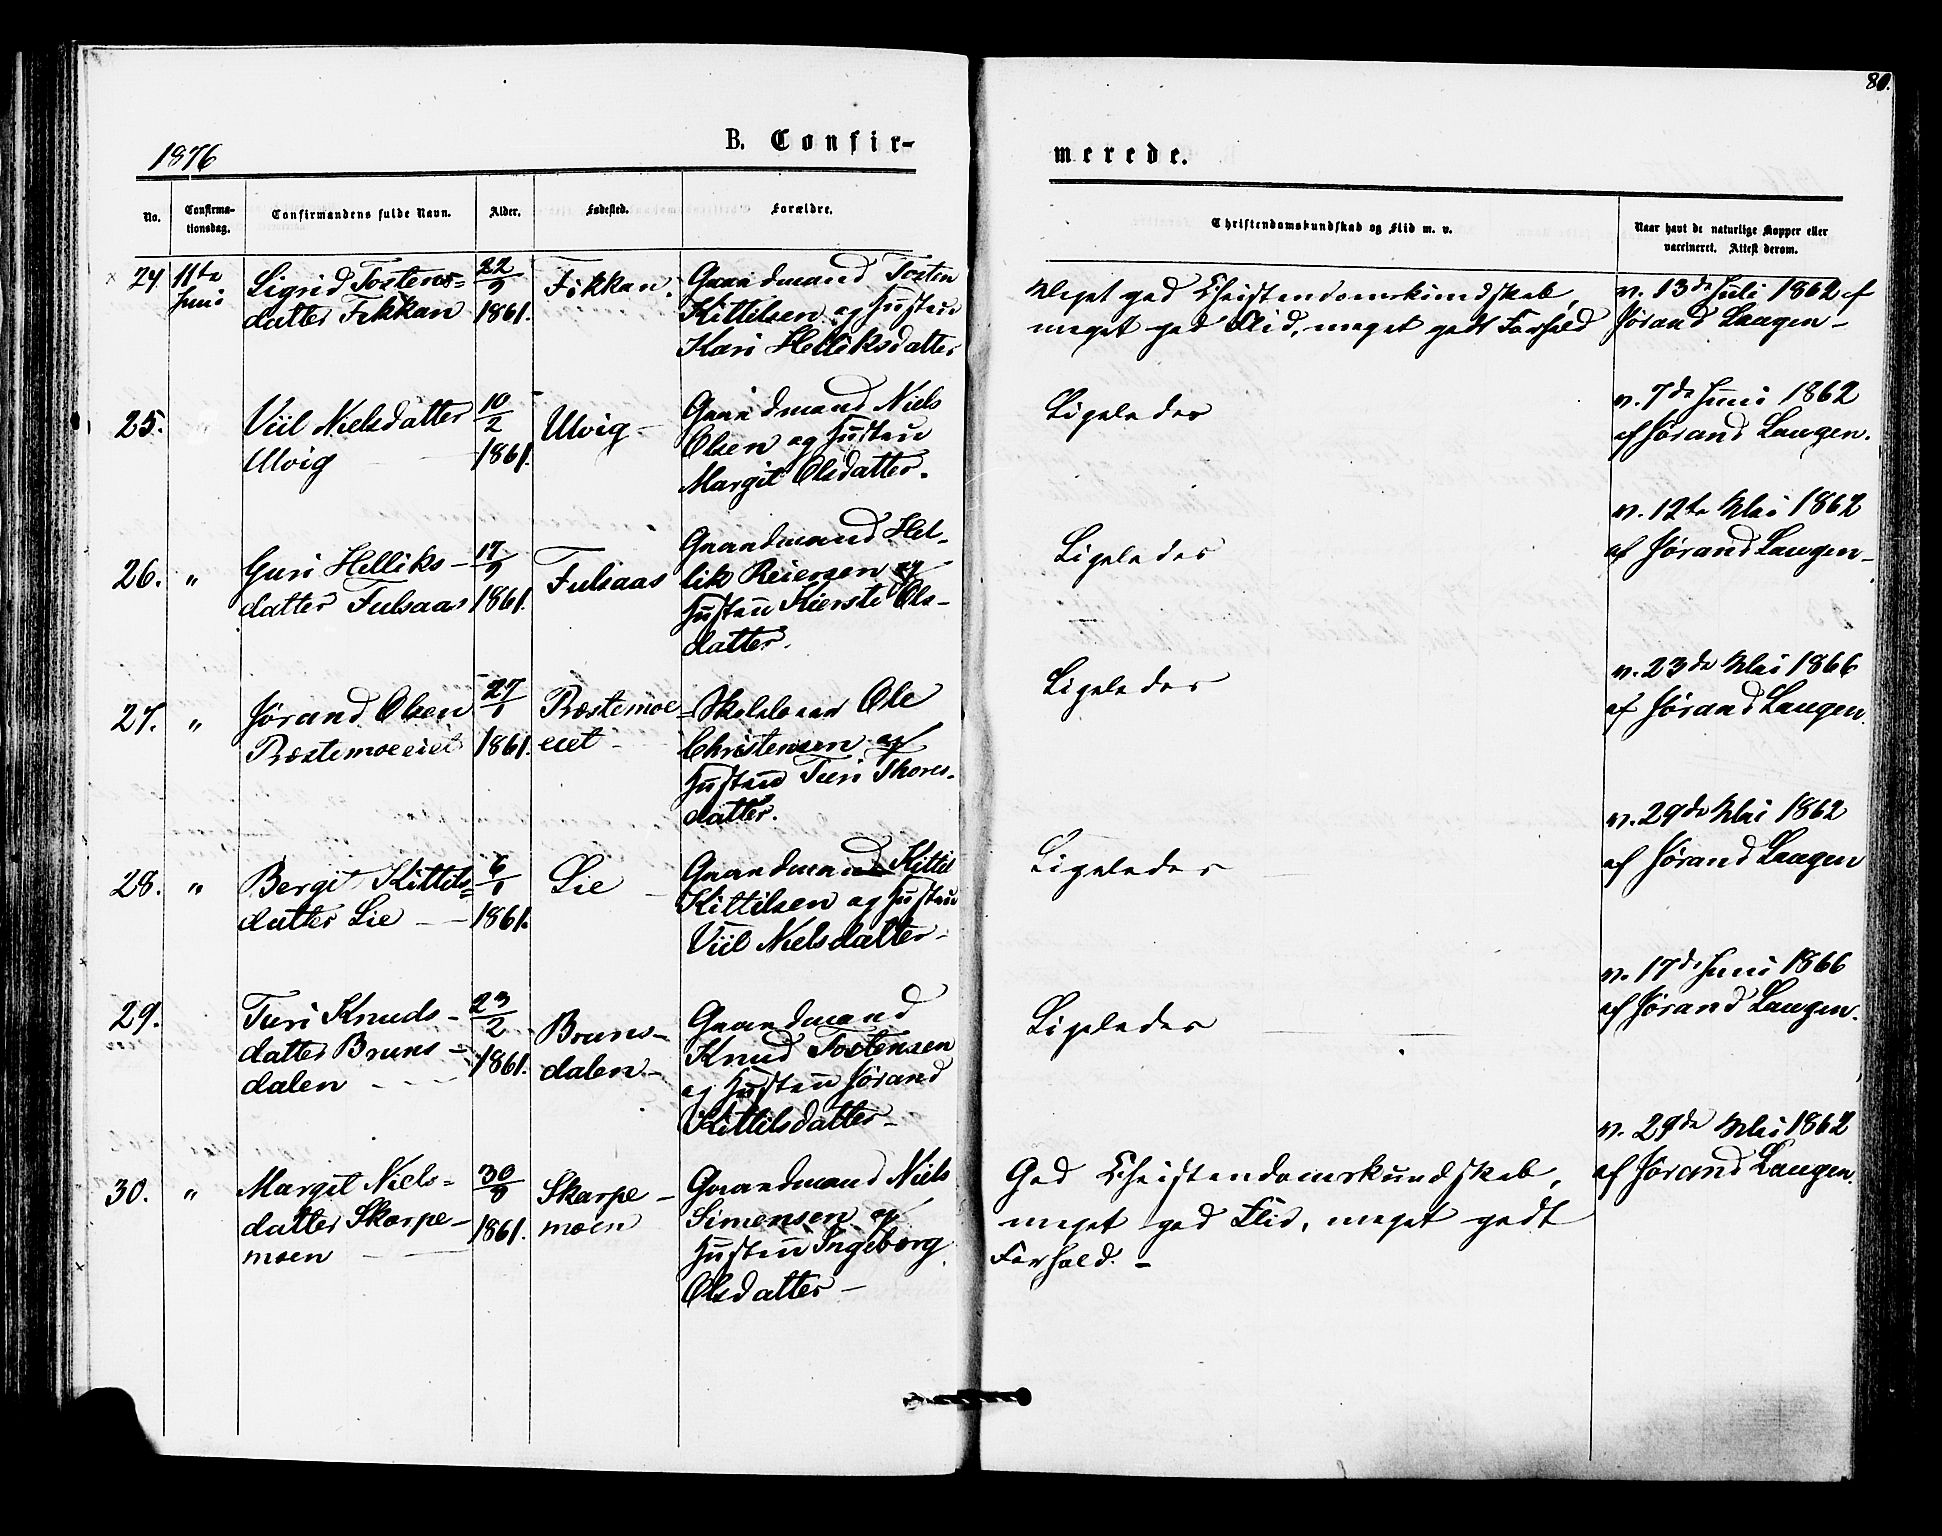 80.
1876
B. Confir-
merede.
No.
Confirma-
tionsdag.
Confirmandens fulde Navn.
Alder.
Fødested.
Forældre.
Christendomskundskab og Flid m. v.
Naar havt de naturlige Kopper eller
vaccineret. Attest derom.
24 11te Juni
Sigrid Tostens=
datter Fekkan
22/9
1861.
Fekkan.
Gaardmand Tosten
Kittilsen og Hustru
Kari Helliksdatter
Meget god Christendomskundskab,
meget god Flid, meget godt Forhold
v. 13de Juli 1862 af
Jørand Laagen-
25. "
Viil Nielsdatter
Ulvig
10/2
1861.
Ulvig-
Gaardmand Niels
Olsen og Hustru
Margit Olsdatter.
Ligeledes
v. 7de Juni 1862
af Jørand Laagen.
26. "
Guri Helliks-
datter Fulsaas
17/9
1861.
Fulsaas
Gaardmand Hel-
lik Reiersen og
Hustru Kiersti Ols-
datter.
Ligeledes
v. 12te Mai 1862
af Jørand Laagen-
27. "
Jørand Olsen
Præstemoeeiet
27/1
1861.
Præstemoe
eiet-
Skolelærer Ole
Christensen og
Hustru Turi Thores-
datter.
Ligeledes
v. 23de Mai 1866
af Jørand Laagen.
28. "
Bergit Kittils=
datter Lie
6/1
1861.
Lie
Gaardmand Kittil
Kittilsen og Hustru
Viil Nielsdatter-
Ligeledes
v. 29de Mai 1862
af Jørand Laagen
29.
Turi Knuds-
datter Bruns-
dalen
23/2
1861.
Bruns-
dalen-
Gaardmand
Knud Tostensen
og Hustru Jørand
Kittilsdatter-
Ligeledes
v. 17de Juni 1866
af Jørand Laagen.
30. "
Margit Niels-
datter Skarpe-
moen
30/9
1861.
Skarpe-
moen
Gaardmand Niels
Simensen og
Hustru Ingeborg
Olsdatter-
God Christendomskundskab,
meget god Flid, meget godt
Forhold.-
v. 29de Mai 1862
af Jørand Laagen.